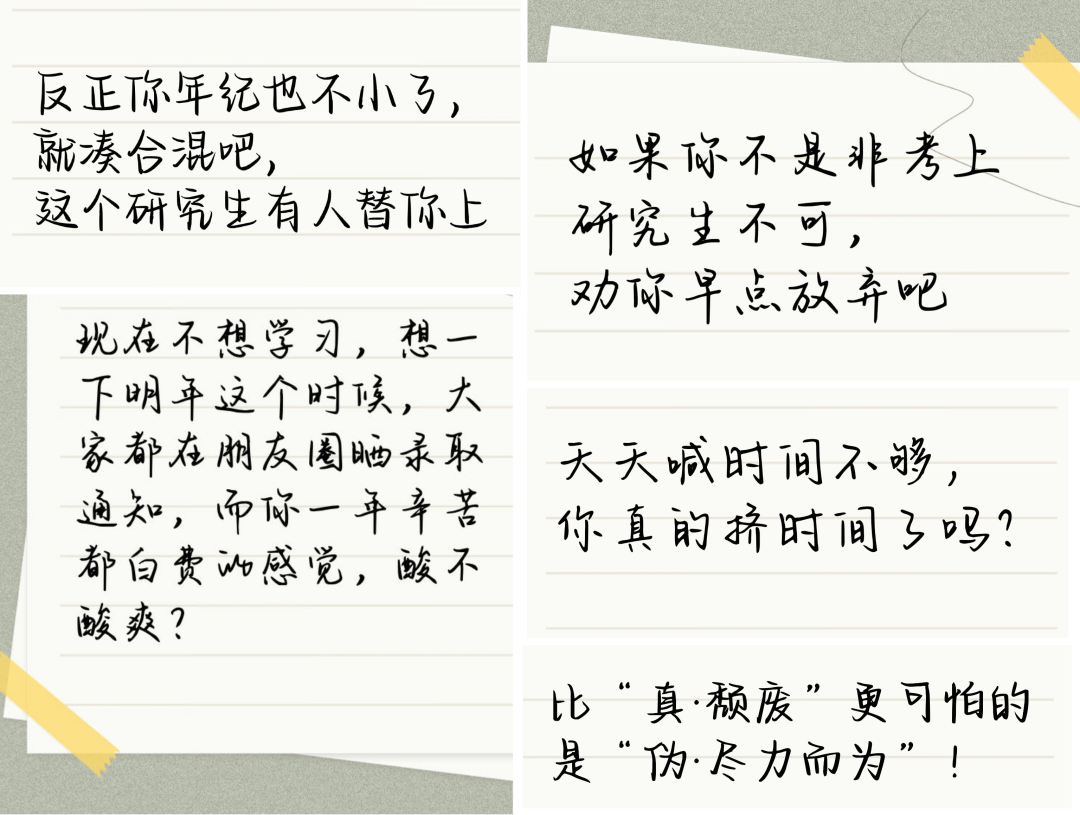 反正你年纪也不小了，
就凑合混吧，
这个研究生有人替你上
现在不想学习，想一
下明年这个时候，大
家都在朋友圈晒录取
通知，而你一年辛苦
都白费的感觉，酸不
酸爽？
如果你不是非考上
研究生不可，
劝你早点放弃吧
天天喊时间不够，
你真的挤时间了吗？
比“真·颓废”更可怕的
是“伪·尽力而为”！